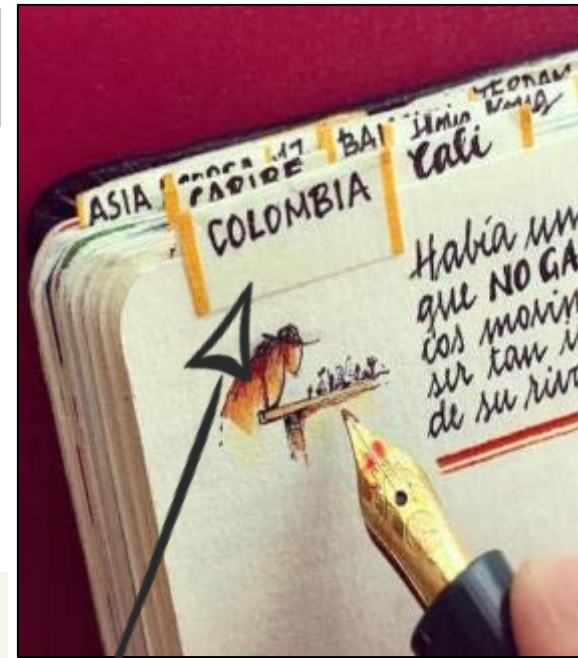 ASIA
CARIBE
BA
COLOMBIA
Cali
Había un
que NO GA
cos movin
ser tan i
de su riv